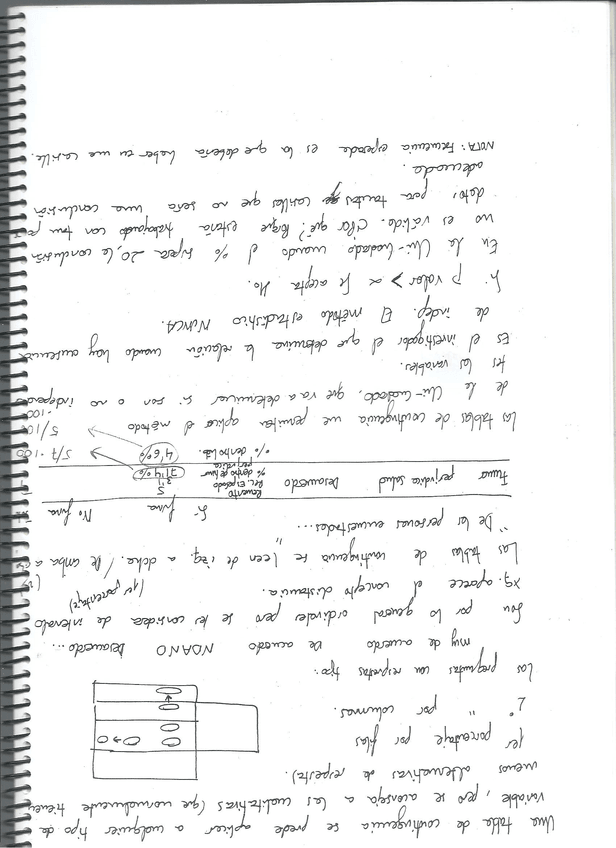 Una tabla de contingencia se puede aplicar a cualquier tipo de
variable, pero se aconseja a las cualitativas (que normalmente tienen
menos alternativas de respuesta).
1er porcentaje por filas
2º " por columnas.
Las preguntas con respuestas tipo:
muy de acuerdo De acuerdo NDANO Desacuerdo...
Son por lo general ordinales pero se les considera de intervalo
xq. aparece el concepto distancia.
(1er porcentaje)
Las tablas de contingencia se leen de izq. a dcha. / De arriba a
"De las personas encuestadas...."
Si fuma No fuma
Fumar perjudica salud Desacuerdo
Recuento 5
Rec. Esperado 3'1
% dentro de fumar perjudica 71'4% 5/7·100
% dentro 4'6% 5/109·100
Las tablas de contingencia me permiten aplicar el método
de la Chi-cuadrado. que va a determinar si son o no independien
tes las variables.
Es el investigador el que determina la relación cuando hay ausencia
de indep. El método estadístico NUNCA.
Si p valor > α Se acepta H₀.
En la Chi-cuadrado cuando el % supera 20, la conclusión
no es válida. Clar. qué? Porque estaría trabajando con tan pocos
datos para tantas casillas que no sería una conclusión
adecuada.
NOTA: Frecuencia esperada es la que debería haber en una casilla.